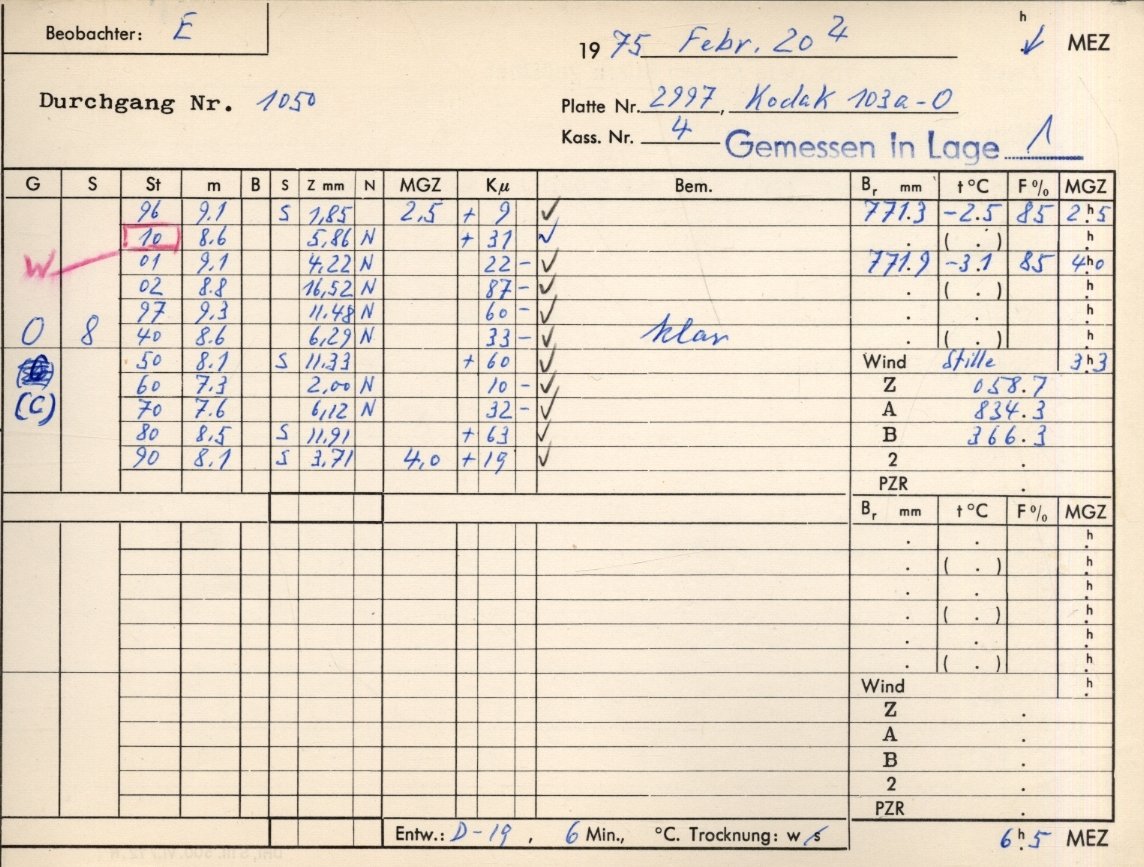 Beobachter: E
1975 Febr. 20 h MEZ
Durchgang Nr. 1050
Platte Nr. 2997, Kodak 103a-O
Kass. Nr. 4 Gemessen in Lage 1
G S St m B S Z mm N MGZ Kμ Bem. Br mm t °C F % MGZ
96 9.1 S 1,85 2,5 + 9 ✓ 771.3 -2.5 85 2h.5
10 8.6 5,86 N + 31 ✓ ( . ) h
W 01 9.1 4,22 N 22 - ✓ 771.9 -3.1 85 4h.0
02 8.8 16,52 N 87 - ✓ ( . ) h
97 9.3 11.48 N 60 - ✓ h
0 8 40 8.6 6,29 N 33 - ✓ klar ( . ) h
50 8.1 S 11.33 + 60 ✓ Wind Stille 3h.3
60 7.3 2,00 N 10 - ✓ Z 058.7
(C) 70 7.6 6,12 N 32 - ✓ A 834.3
80 8,5 S 11,91 + 63 ✓ B 366.3
90 8.1 S 3,71 4,0 + 19 ✓ 2 .
PZR .
Br mm t °C F % MGZ
. . h
. ( . ) h
. . h
. ( . ) h
. . h
. ( . ) h
Wind h
Z .
A .
B .
2 .
PZR .
Entw.: D-19, 6 Min., °C. Trocknung: w s 6h.5 MEZ